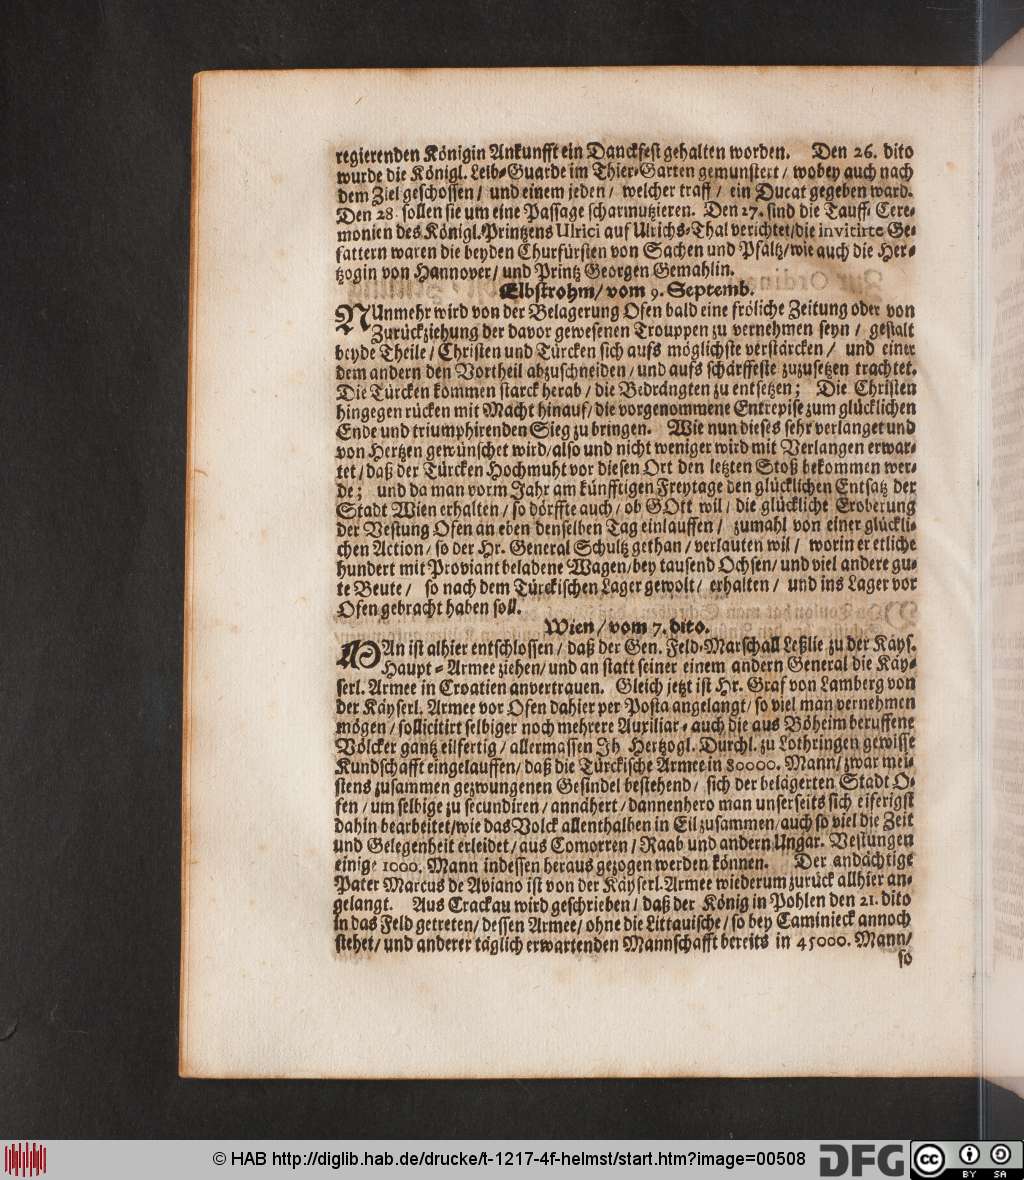 regierenden Königin Ankunfft ein Danckfest gehalten worden. Den 26. dito
wurde die Königl. Leib-Guarde im Thier-Garten gemunstert / wobey auch nach
dem Ziel geschossen / und einem jeden / welcher traff / ein Ducat gegeben ward.
Den 28. sollen sie um eine Passage scharmutzieren. Den 27. sind die Tauff-Cere-
monien des Königl. Printzens Ulrici auf Ulrichs-Thal verichtet/die invitirte Ge-
fattern waren die beyden Churfürsten von Sachen und Pfältz/wie auch die Her-
tzogin von Hannover/ und Printz Georgen Gemahlin.
Elbstrohm/ vom 9. Septemb.
NUnmehr wird von der Belagerung Ofen bald eine fröliche Zeitung oder von
Zurückziehung der davor gewesenen Trouppen zu vernehmen seyn / gestalt
beyde Theile / Christen und Türcken sich aufs möglichste verstärcken / und einer
dem andern den Vortheil abzuschneiden / und aufs schärffeste zuzusetzen trachtet.
Die Türcken kommen starck herab / die Bedrängten zu entsetzen; Die Christen
hingegen rücken mit Macht hinauf/ die vorgenommene Entrepise zum glücklichen
Ende und triumphirenden Sieg zu bringen. Wie nun dieses sehr verlanget und
von Hertzen gewünschet wird/also und nicht weniger wird mit Verlangen erwar-
tet / daß der Türcken Hochmuht vor diesen Ort den letzten Stoß bekommen wer-
de; und da man vorm Jahr am künfftigen Freytage den glücklichen Entsatz der
Stadt Wien erhalten / so dörffte auch / ob GOtt wil / die glückliche Eroberung
der Vestung Ofen an eben denselben Tag einlauffen / zumahl von einer glückli-
chen Action / so der Hr. General Schultz gethan / verlauten wil / worin er etliche
hundert mit Proviant beladene Wagen / bey tausend Ochsen / und viel andere gu-
te Beute / so nach dem Türckischen Lager gewolt / erhalten / und ins Lager vor
Ofen gebracht haben soll.
Wien / vom 7. dito.
MAn ist alhier entschlossen / daß der Gen. Feld-Marschall Leßlie zu der Käys.
Haupt-Armee ziehen/ und an statt seiner einem andern General die Käy-
serl. Armee in Croatien anvertrauen. Gleich jetzt ist Hr. Graf von Lamberg von
der Käyserl. Armee vor Ofen dahier per Posta angelangt/ so viel man vernehmen
mögen / sollicitirt selbiger noch mehrere Auxiliar- auch die aus Böheim beruffene
Völcker gantz eilfertig / allermassen Ih Hertzogl. Durchl. zu Lothringen gewisse
Kundschafft eingelauffen/ daß die Türckische Armee in 80000. Mann/ zwar mei-
stens zusammen gezwungenen Gesindel bestehend / sich der belägerten Stadt O-
fen / um selbige zu secundiren / annähert / dannenhero man unserseits sich eiferigst
dahin bearbeitet/wie das Volck allenthalben in Eil zusammen/auch so viel die Zeit
und Gelegenheit erleidet / aus Comorren / Raab und andern Ungar. Vestungen
einige 1000. Mann indessen heraus gezogen werden können. Der andächtige
Pater Marcus de Aviano ist von der Käyserl. Armee wiederum zurück allhier an-
gelangt. Aus Crackau wird geschrieben / daß der König in Pohlen den 21. dito
in das Feld getreten / dessen Armee / ohne die Littauische / so bey Caminieck annoch
stehet / und anderer täglich erwartenden Mannschafft bereits in 45000. Mann/
so
© HAB http://diglib.hab.de/drucke/t-1217-4f-helmst/start.htm?image=00508
DFG
cc BY SA